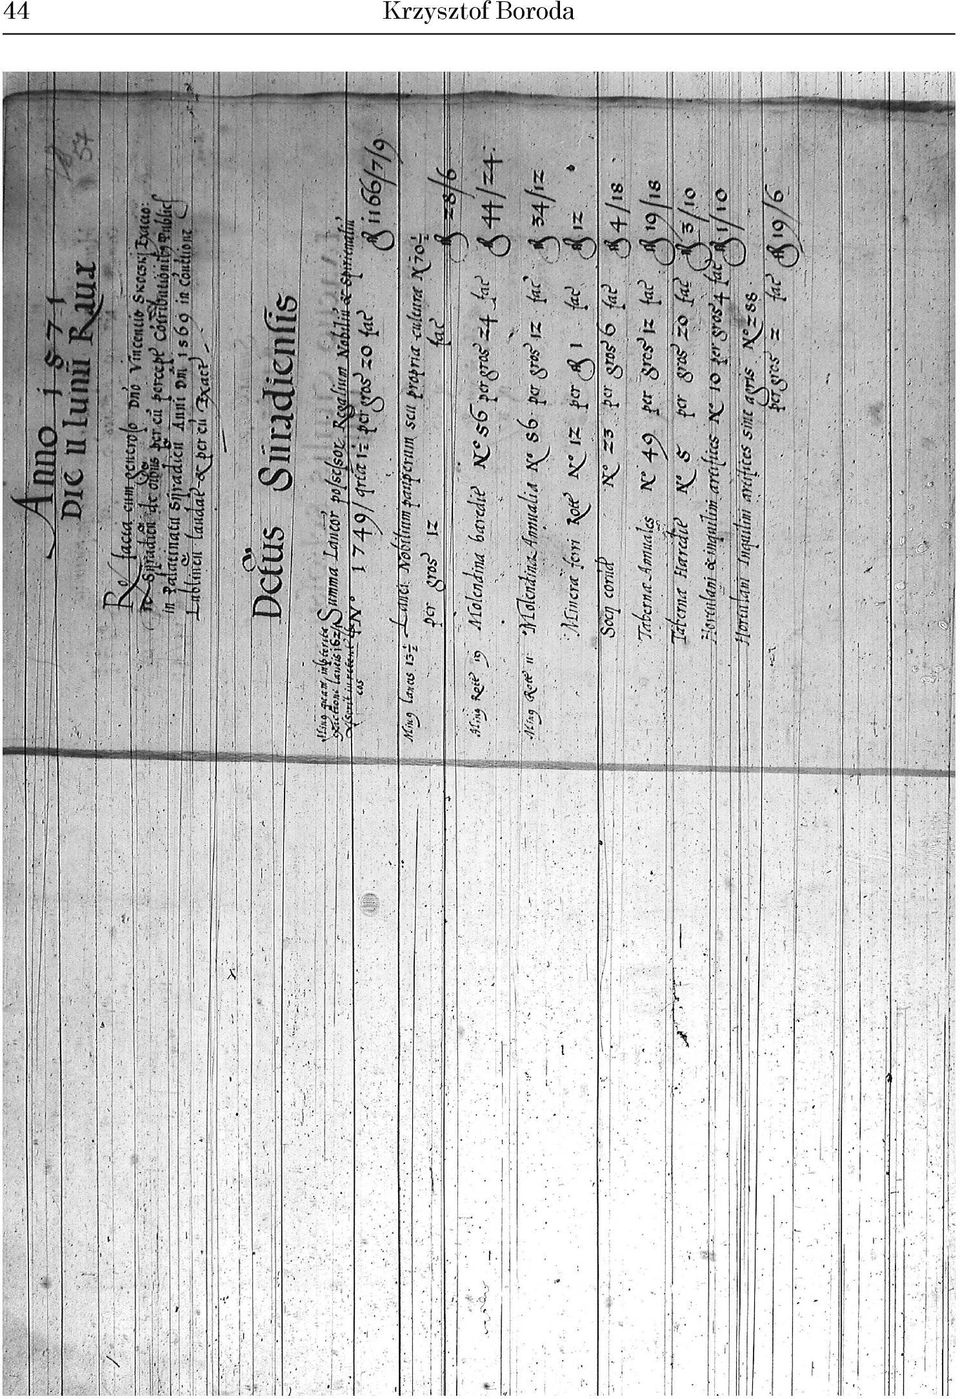 44
Krzysztof Boroda
Anno 1571
Die 11 Iunii Rauæ
Ro facta cum generoso Dno Vincentio Exacto:
re Siradien de oibus per eu percept Cotributionibus Public
in palatinatu Siradien Anni Dni 1569 in Contione
Lublinen laudat & per eu Exact
Dctus Siradiensis
Summa Laneor possessor Regalium Nobiliu & Spiritualiu
No 1749/ qrta 1½ per gros 20 fac 1166/7/9
Ming laneis 13½ Lanei Nobilium pauperum seu propria culturæ N 70½
per gros 12 fac 28/6
Ming Rote 19 Molendina hæredit No 56 per gros 24 fac 44/24
Ming Rote 11 Molendina Annualia No 86 per gros 12 fac 34/12
Minera ferri Rote No 12 per 1 fac 12
Socy coriu No 23 per gros 6 fac 4/18
Tabernæ Annuales No 49 per gros 12 fac 19/18
Tabernæ Hæredit No 5 per gros 20 fac 3/10
Hortulani & inquilini artifices No 10 per gros 4 fac 1/10
Hortulani Inquilini artifices sine agris No 288
per gros 2 fac 19/6